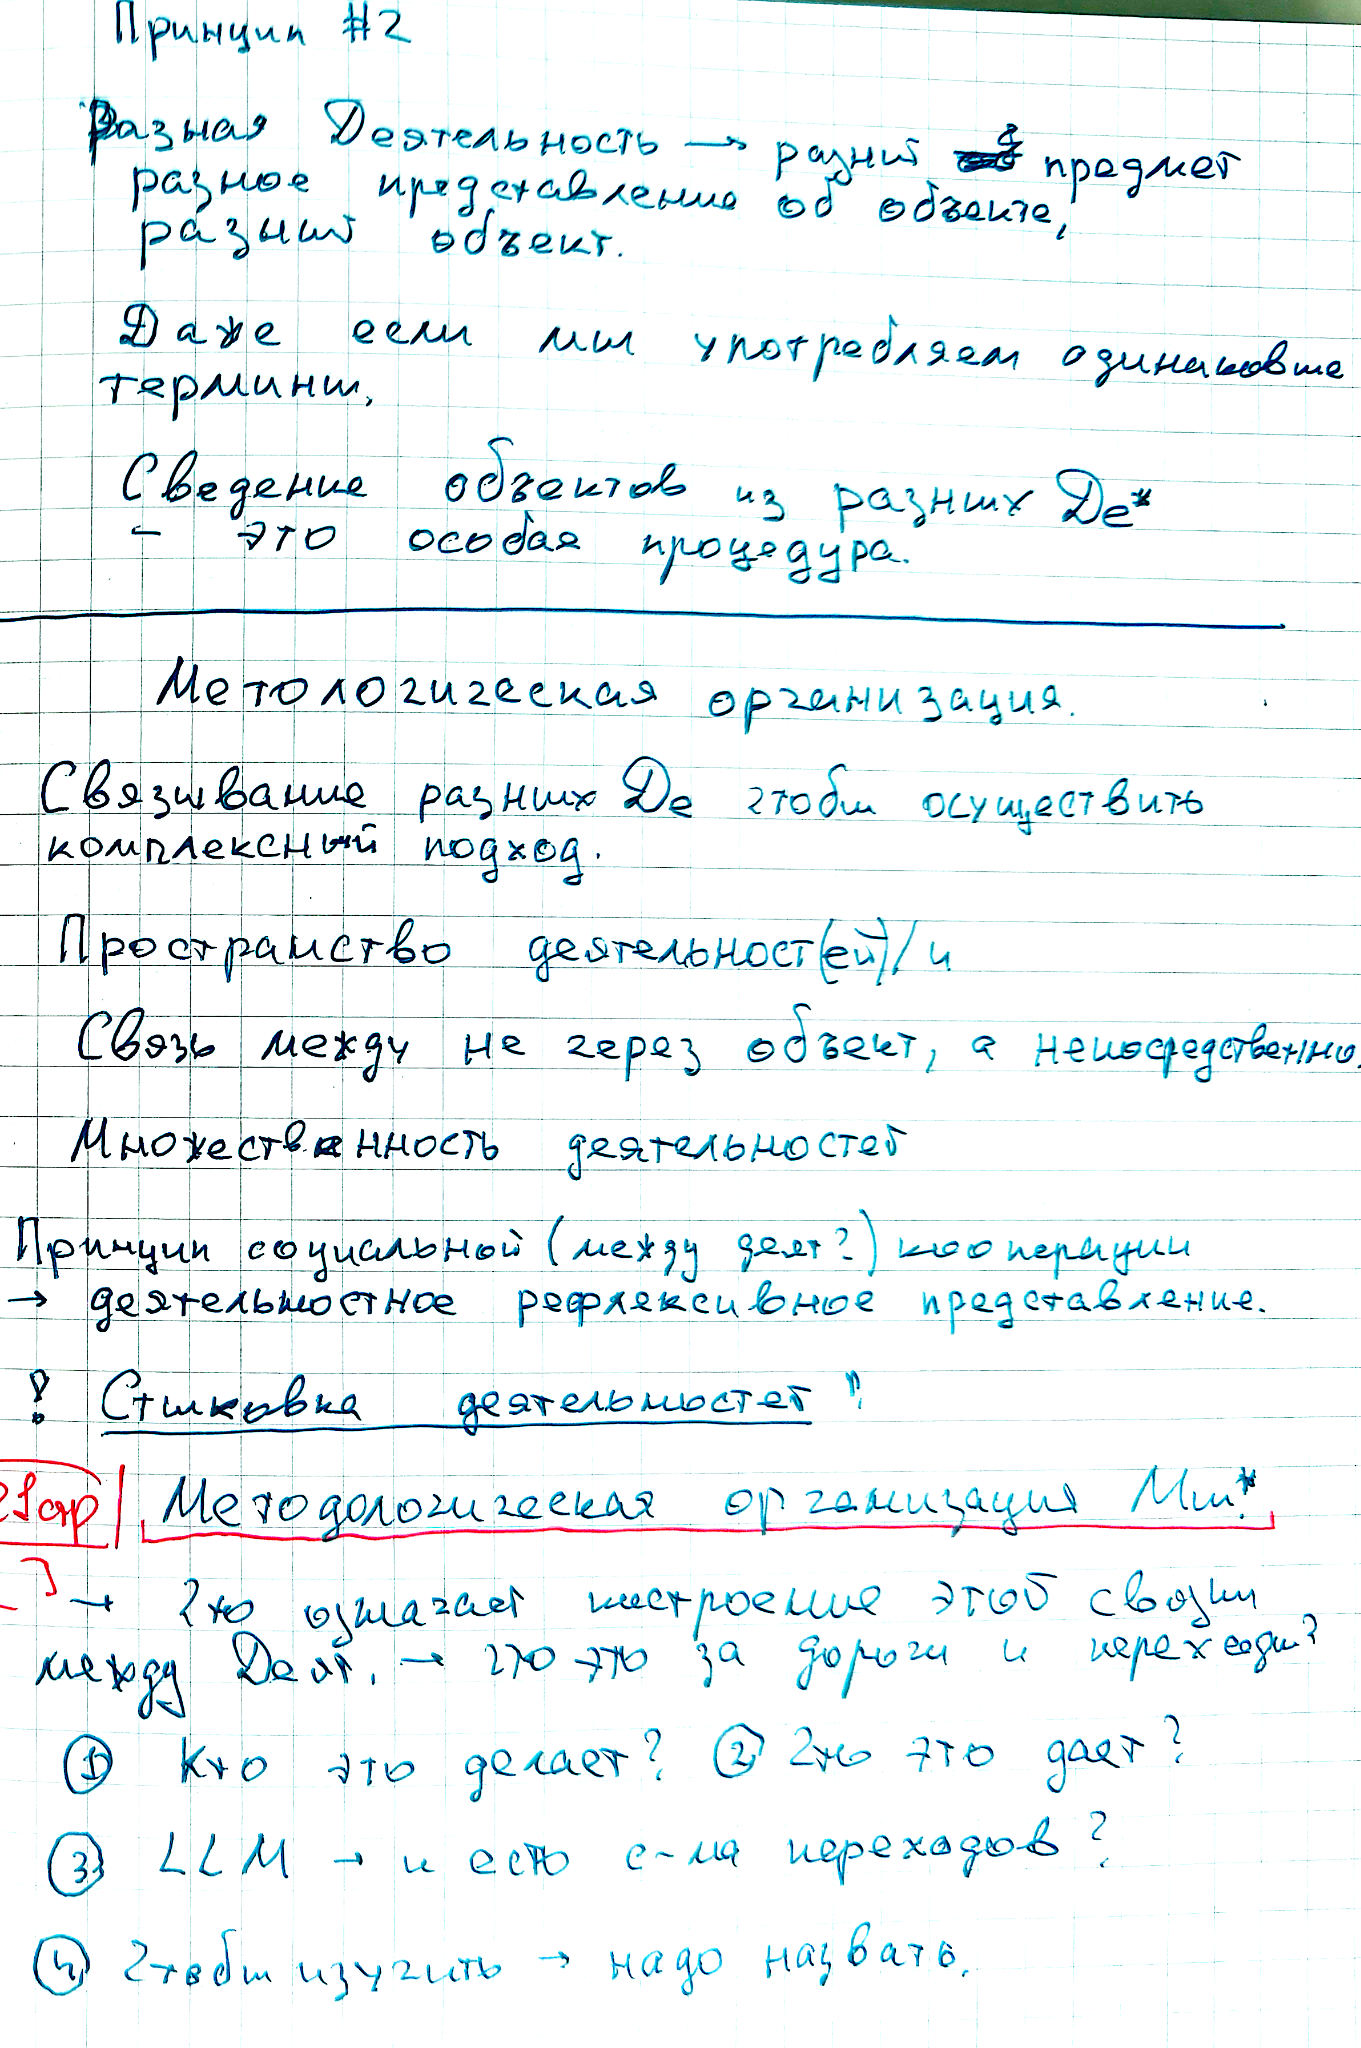 Принцип #2
Разная Деятельность → разный предмет
разное представление об объекте,
разный объект.
Даже если мы употребляем одинаковые
термины.
Сведение объектов из разных De*
- это особая процедура.
Метологическая организация.
Связывание разных De чтобы осуществить
комплексный подход.
Пространство деятельност(ей)/и
Связь между не через объект, а непосредственно.
Множественность деятельностей
Принцип социальной (между деят?) кооперации
→ деятельностное рефлексивное представление.
? Стыковка деятельностей ?
стр Методологическая организация Мы*.
→ Что означает построение этой связки
между Деят. → что это за дороги и переходы?
① Кто это делает? ② Что это дает?
③ LLM → и есть с-ма переходов?
④ Чтобы изучить → надо назвать.